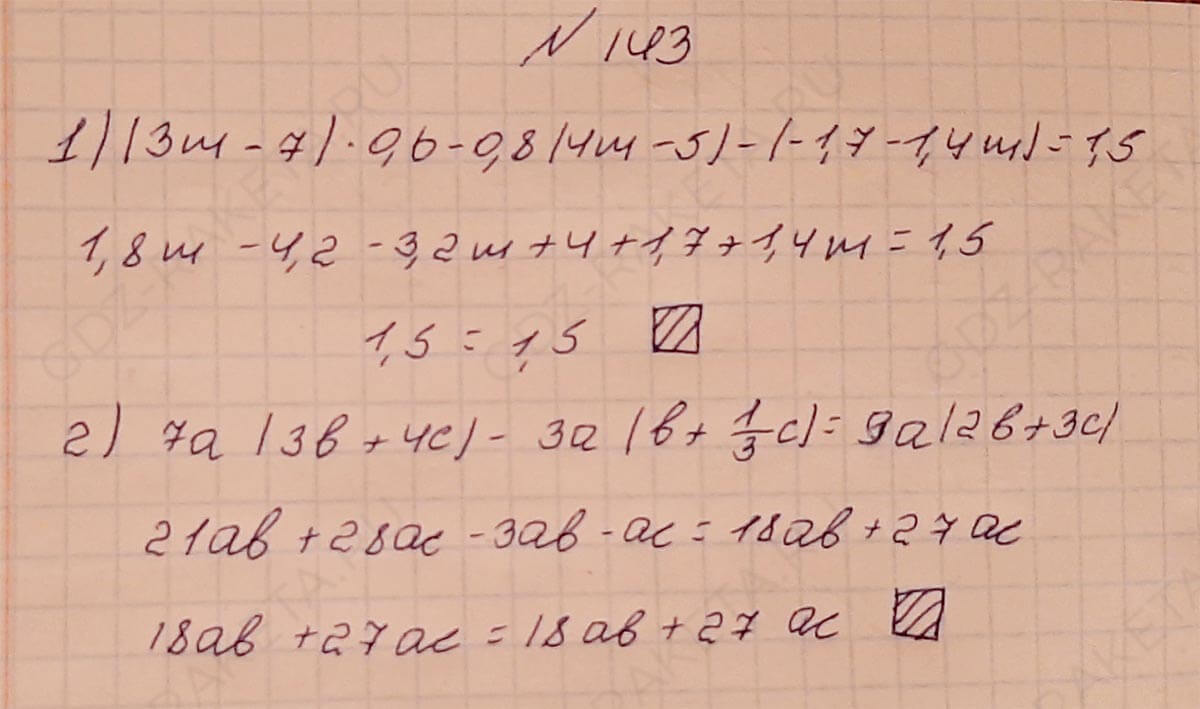 № 143
1) (3m - 7) · 0,6 - 0,8(4m - 5) - (-1,7 - 1,4m) = 1,5
1,8m - 4,2 - 3,2m + 4 + 1,7 + 1,4m = 1,5
1,5 = 1,5
2) 7a (3в + 4c) - 3a (в + 1/3 c) = 9a(2в + 3c)
21aв + 28ac - 3aв - ac = 18aв + 27ac
18aв + 27ac = 18aв + 27 ac
GDZ-RAKETA.RU